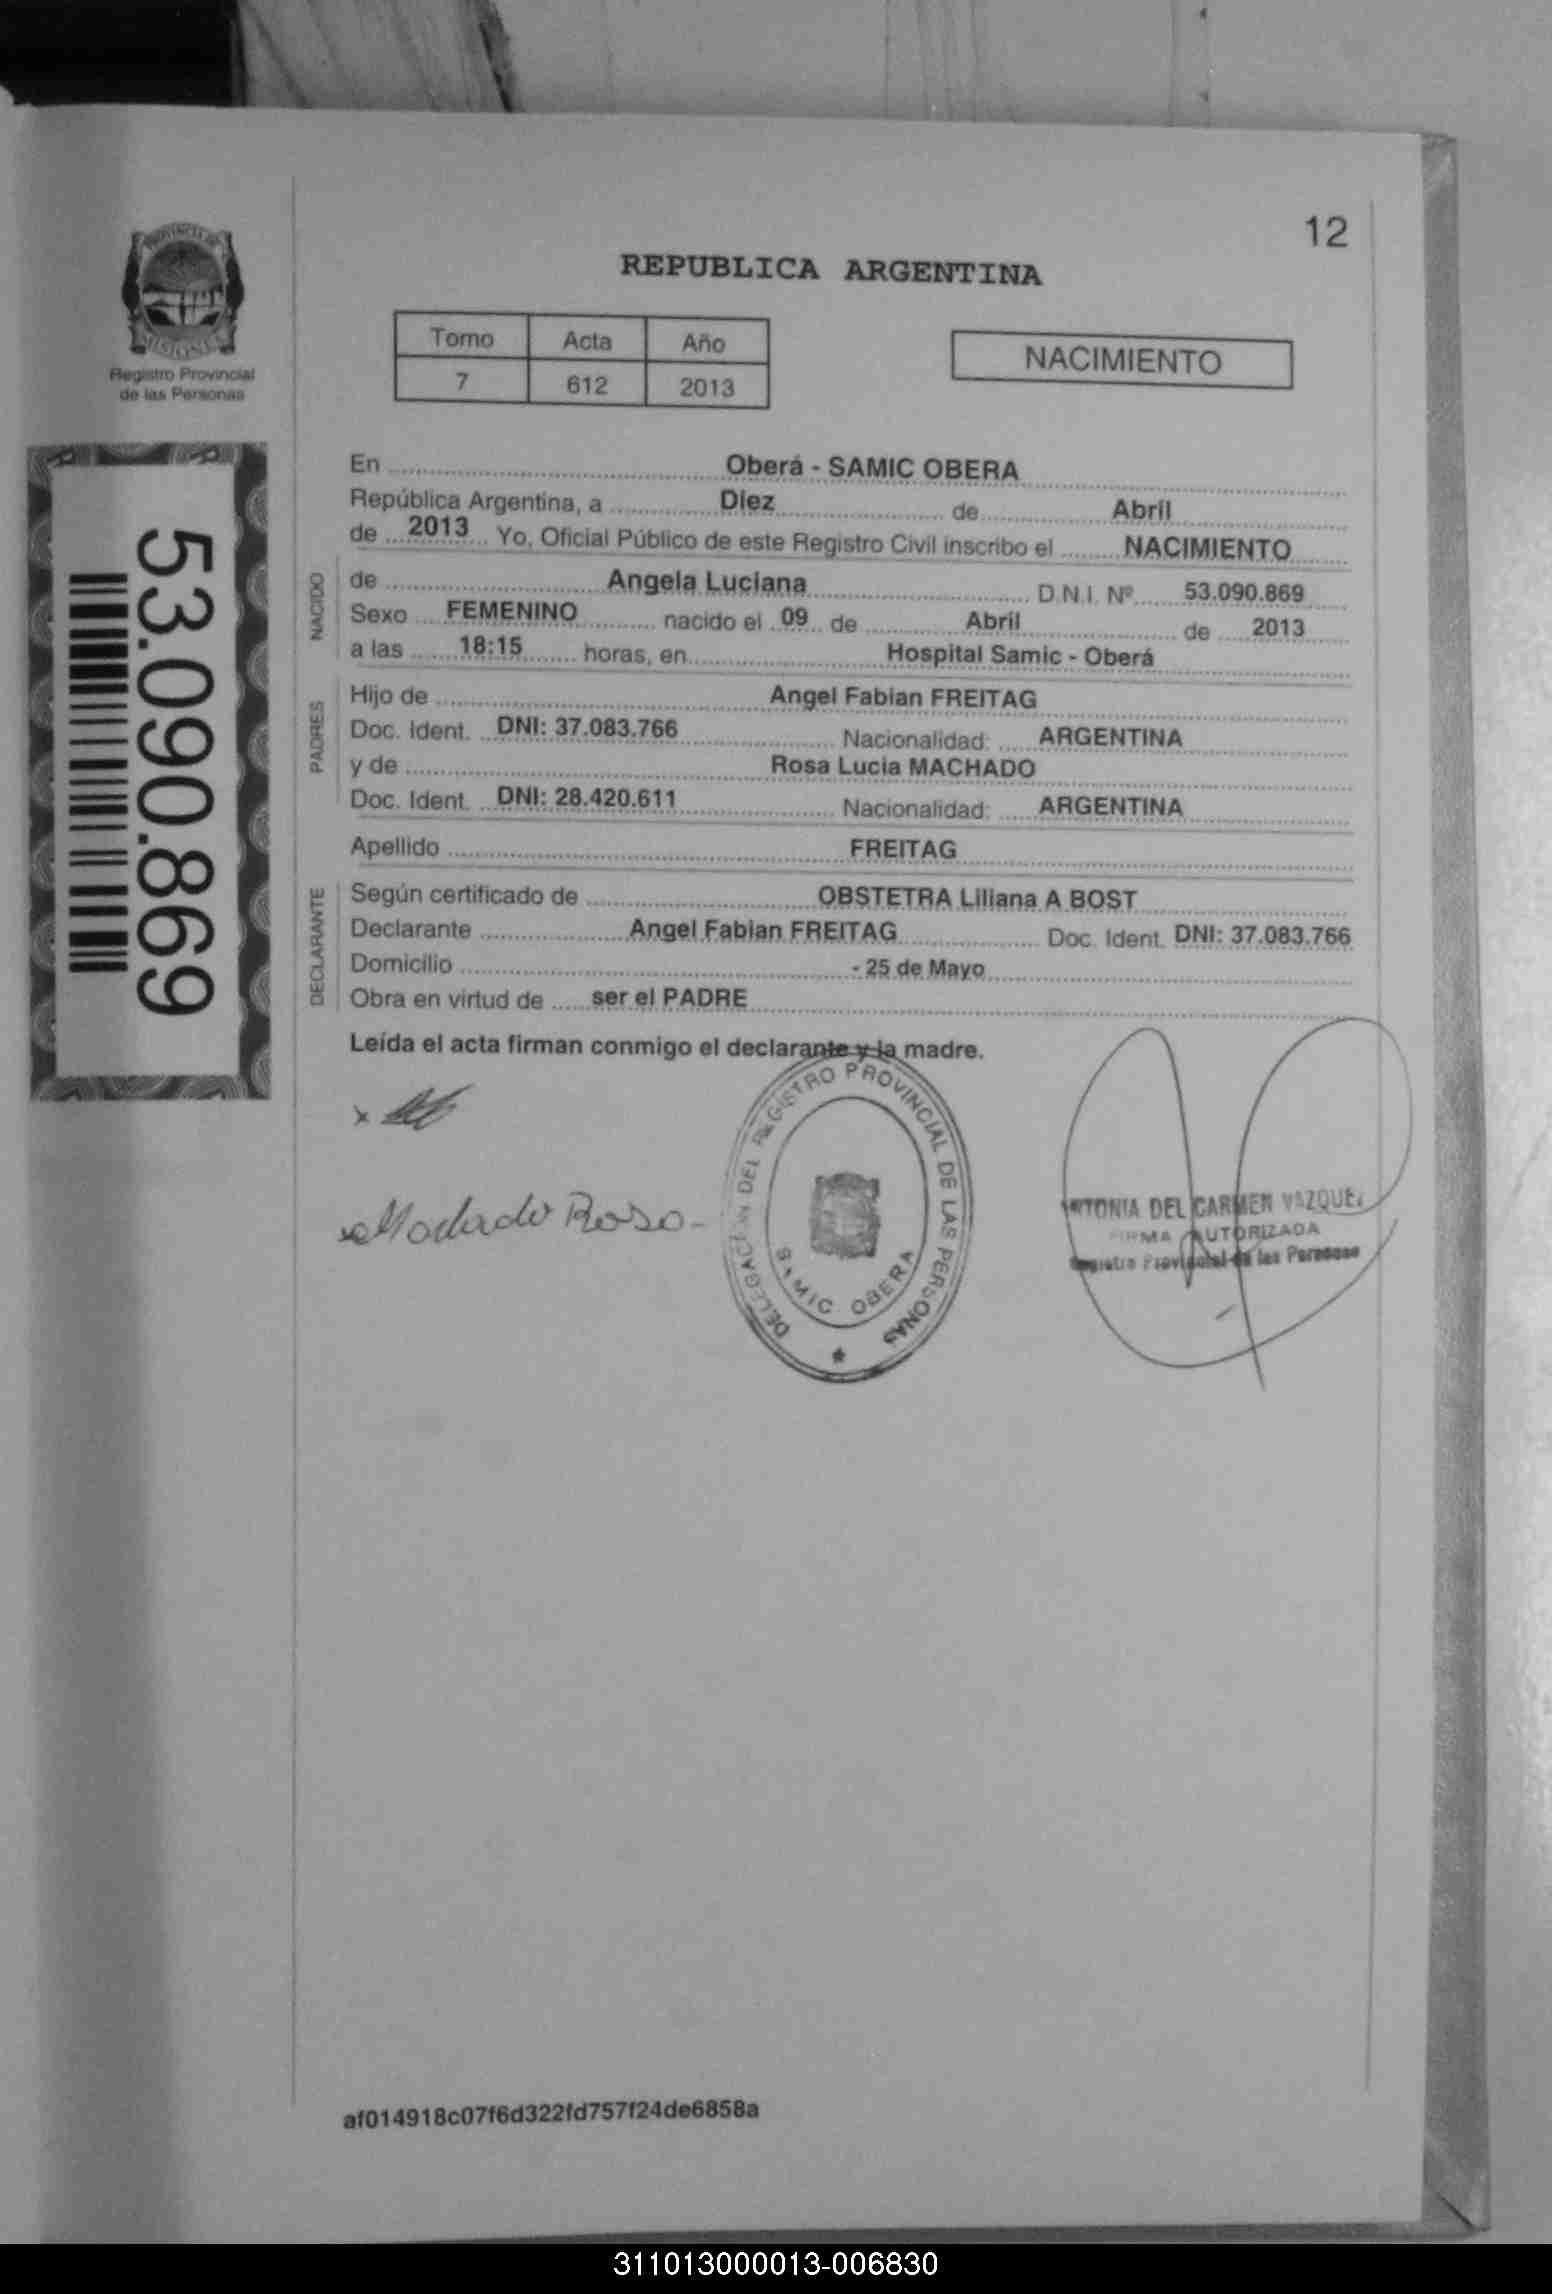 12
REPUBLICA ARGENTINA
Tomo Acta Año
7 612 2013
NACIMIENTO
PROVINCIA DE
MISIONES
Registro Provincial
de las Personas
53.090.869
En Oberá - SAMIC OBERA
República Argentina, a Diez de Abril
de 2013 Yo, Oficial Público de este Registro Civil inscribo el NACIMIENTO
NACIDO
de Angela Luciana D.N.I. Nº 53.090.869
Sexo FEMENINO nacido el 09 de Abril de 2013
a las 18:15 horas, en Hospital Samic - Oberá
PADRES
Hijo de Angel Fabian FREITAG
Doc. Ident. DNI: 37.083.766 Nacionalidad: ARGENTINA
y de Rosa Lucia MACHADO
Doc. Ident. DNI: 28.420.611 Nacionalidad: ARGENTINA
Apellido FREITAG
DECLARANTE
Según certificado de OBSTETRA Liliana A BOST
Declarante Angel Fabian FREITAG Doc. Ident. DNI: 37.083.766
Domicilio - 25 de Mayo
Obra en virtud de ser el PADRE
Leída el acta firman conmigo el declarante y la madre.
x
Machado Rosa
DELEGACION DEL REGISTRO PROVINCIAL DE LAS PERSONAS
SAMIC OBERA
DEL CARMEN VAZQUEZ
FIRMA AUTORIZADA
Registro Provincial de las Personas
af014918c07f6d322fd757f24de6858a
311013000013-006830